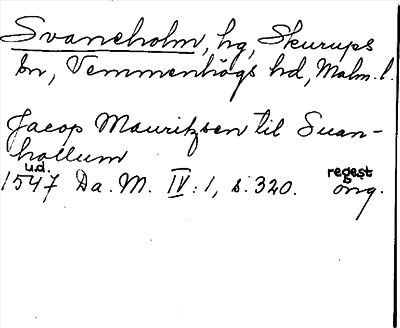 Svaneholm, hg, Skurups
sn, Vemmenhögs hd, Malm. l.
Jacop Mauritzsen til Suan-
hollum
u.d.
1547 Da. M. IV: 1, s. 320.
regest
orig.